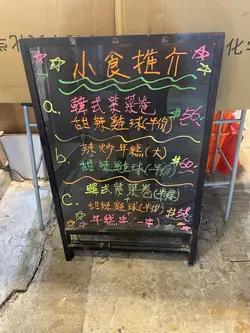 小食推介
a. 韓式紫菜卷
甜辣雞球(半份) $56
b. 辣炒年糕(大)
甜辣雞球(半份) $60
C. 韓式紫菜卷(半條)
+
甜辣雞球(半份) $58
年糕串(一串)